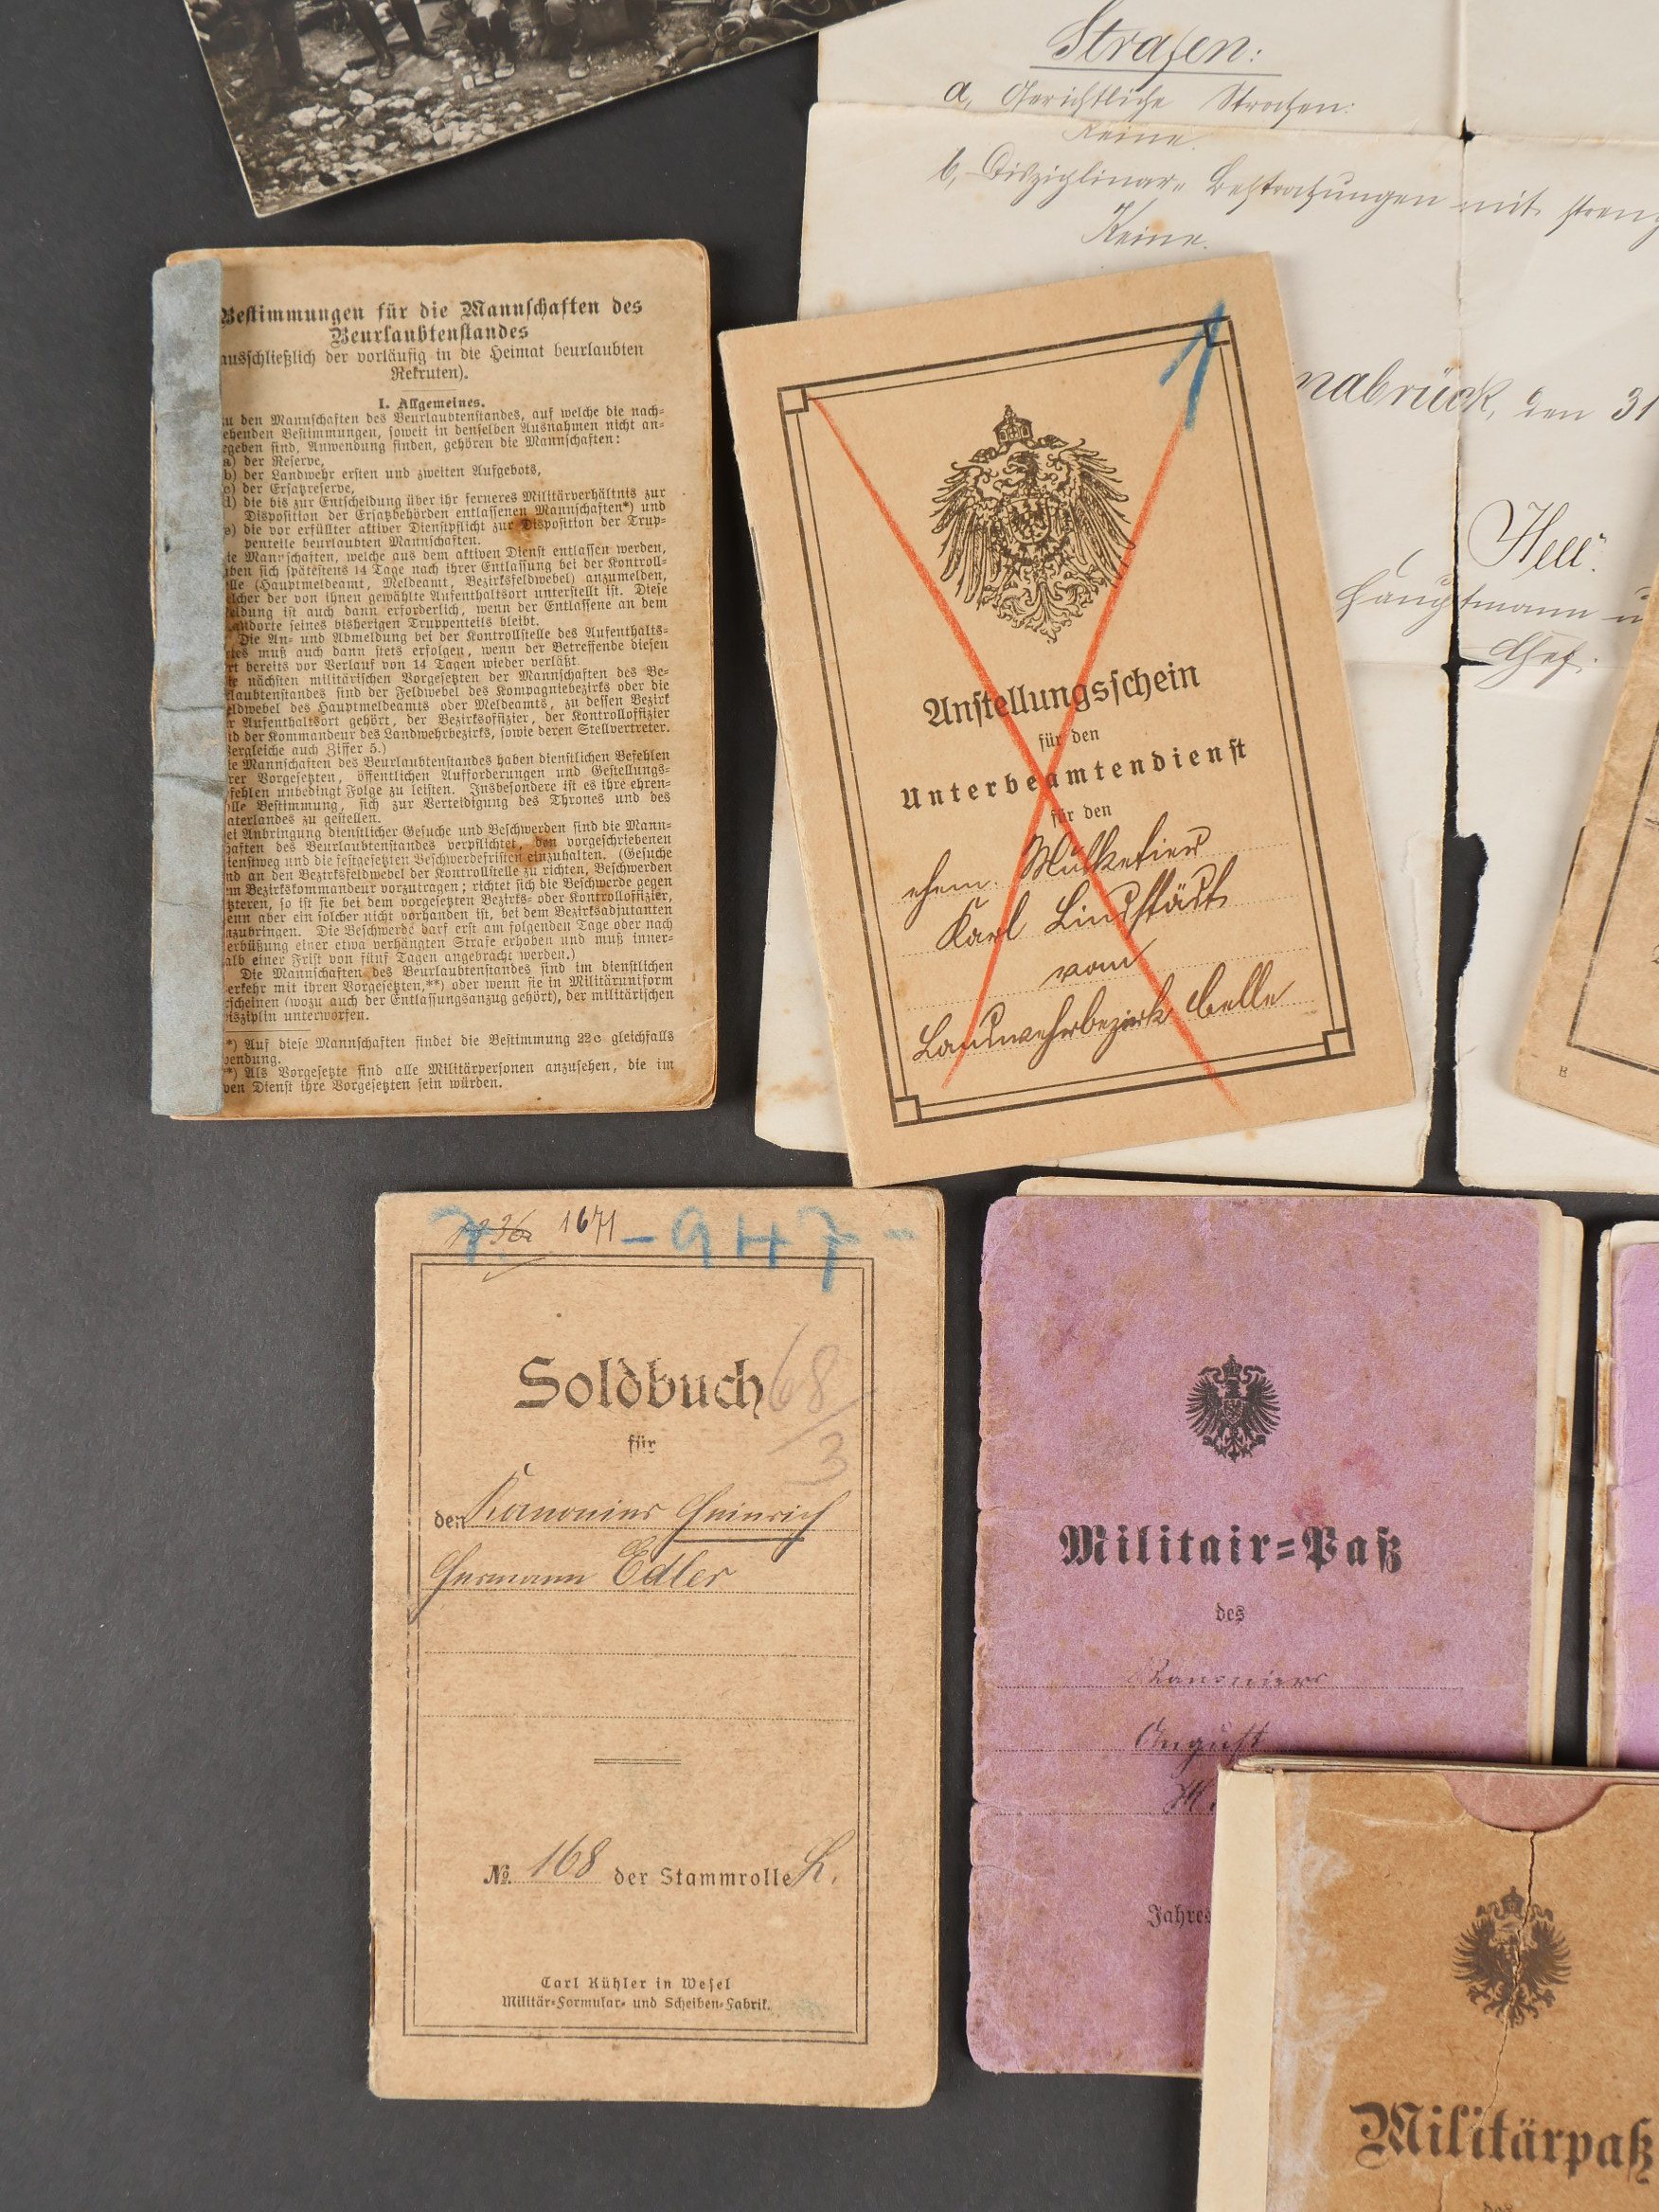 Strafen:
a, Gerichtliche Strafen:
Keine.
b, Disziplinar-Bestrafungen mit streng
Keine.
nabrück, den 31
Hauptmann u
Chef.
Bestimmungen für die Mannschaften des
Beurlaubtenstandes
ausschließlich der vorläufig in die Heimat beurlaubten
Rekruten).
I. Allgemeines.
u den Mannschaften des Beurlaubtenstandes, auf welche die nach-
ehenden Bestimmungen, soweit in denselben Ausnahmen nicht an-
egeben sind, Anwendung finden, gehören die Mannschaften:
a) der Reserve,
b) der Landwehr ersten und zweiten Aufgebots,
c) der Ersatzreserve,
d) die bis zur Entscheidung über ihr ferneres Militärverhältnis zur
Disposition der Ersatzbehörden entlassenen Mannschaften*) und
e) die vor erfüllter aktiver Dienstpflicht zur Disposition der Trup-
penteile beurlaubten Mannschaften.
ie Mannschaften, welche aus dem aktiven Dienst entlassen werden,
ben sich spätestens 14 Tage nach ihrer Entlassung bei der Kontroll-
lle (Hauptmeldeamt, Meldeamt, Bezirksfeldwebel) anzumelden,
elcher der von ihnen gewählte Aufenthaltsort unterstellt ist. Diese
eldung ist auch dann erforderlich, wenn der Entlassene an dem
andorte seines bisherigen Truppenteils bleibt.
Die An- und Abmeldung bei der Kontrollstelle des Aufenthalts-
rtes muß auch dann stets erfolgen, wenn der Betreffende diesen
rt bereits vor Verlauf von 14 Tagen wieder verläßt.
e nächsten militärischen Vorgesetzten der Mannschaften des Be-
laubtenstandes sind der Feldwebel des Kompagniebezirks oder die
ldwebel des Hauptmeldeamts oder Meldeamts, zu dessen Bezirk
r Aufenthaltsort gehört, der Bezirksoffizier, der Kontrolloffizier
d der Kommandeur des Landwehrbezirks, sowie deren Stellvertreter.
Vergleiche auch Ziffer 5.)
ie Mannschaften des Beurlaubtenstandes haben dienstlichen Befehlen
rer Vorgesetzten, öffentlichen Aufforderungen und Gestellungs-
fehlen unbedingt Folge zu leisten. Insbesondere ist es ihre ehren-
lle Bestimmung, sich zur Verteidigung des Thrones und des
aterlandes zu gestellen.
ei Anbringung dienstlicher Gesuche und Beschwerden sind die Mann-
haften des Beurlaubtenstandes verpflichtet, den vorgeschriebenen
ienstweg und die festgesetzten Beschwerdefristen einzuhalten. (Gesuche
nd an den Bezirksfeldwebel der Kontrollstelle zu richten, Beschwerden
m Bezirkskommandeur vorzutragen; richtet sich die Beschwerde gegen
tzteren, so ist sie bei dem vorgesetzten Bezirks- oder Kontrolloffizier,
enn aber ein solcher nicht vorhanden ist, bei dem Bezirksadjutanten
nzubringen. Die Beschwerde darf erst am folgenden Tage oder nach
erbüßung einer etwa verhängten Strafe erhoben und muß inner-
alb einer Frist von fünf Tagen angebracht werden.)
Die Mannschaften des Beurlaubtenstandes sind im dienstlichen
erkehr mit ihren Vorgesetzten,**) oder wenn sie in Militäruniform
rscheinen (wozu auch der Entlassungsanzug gehört), der militärischen
isziplin unterworfen.
*) Auf diese Mannschaften findet die Bestimmung 22c gleichfalls
endung.
**) Als Vorgesetzte sind alle Militärpersonen anzusehen, die im
ven Dienst ihre Vorgesetzten sein würden.
1
Anstellungsschein
für den
Unterbeamtendienst
für den
ehem. Musketier
Karl Lindstädt
vom
Landwehrbezirk Celle
B
1671 - 947 -
Soldbuch
68/3
für
den Kanonier Heinrich
Hermann Edler
No. 168 der Stammrolle
Carl Kühler in Wesel
Militär-Formular- und Scheiben-Fabrik.
Militair=Paß
des
Kanoniers
August
Jahres
Militärpaß
des